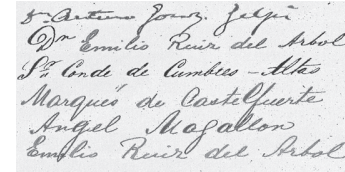 Dn Arturo Gonz. Felpú
Dn Emilio Ruiz del Arbol
Sr Conde de Cumbres-Altas
Marqués de Castelfuerte
Angel Magallon
Emilio Ruiz del Arbol